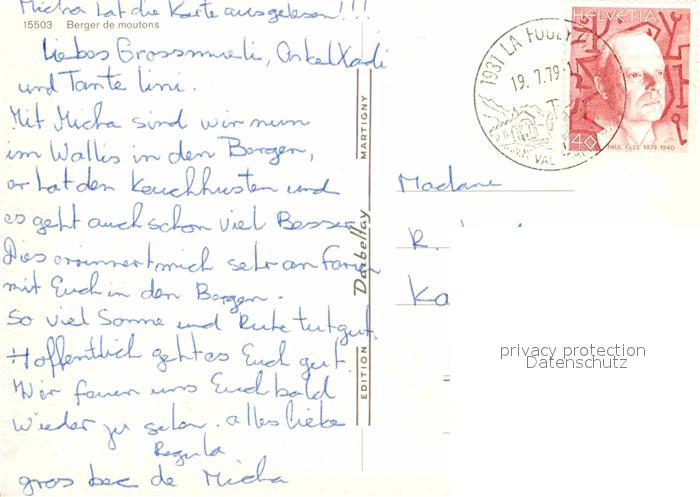 Micha hat die Karte ausgelesen!!!
15503 Berger de moutons
Liebes Grossmueti, Onkel Xadi
und Tante Lini.
Mit Micha sind wir nun
im Wallis in den Bergen,
er hat den Keuchhusten und
es geht auch schon viel Besser
Dies erinnert mich sehr an Farien
mit Euch in den Bergen.
So viel Sonne und Ruhe tut gut.
Hoffentlich geht es Euch gut.
Wir freuen uns Euch bald
wieder zu sehen. alles liebe
Regula
gros bec de Micha
EDITION Darbellay MARTIGNY
1937 LA FOULY
19.7.79
VAL
HELVETIA
40
PAUL KLEE 1879-1940
Madame
R.
Ka
privacy protection
Datenschutz